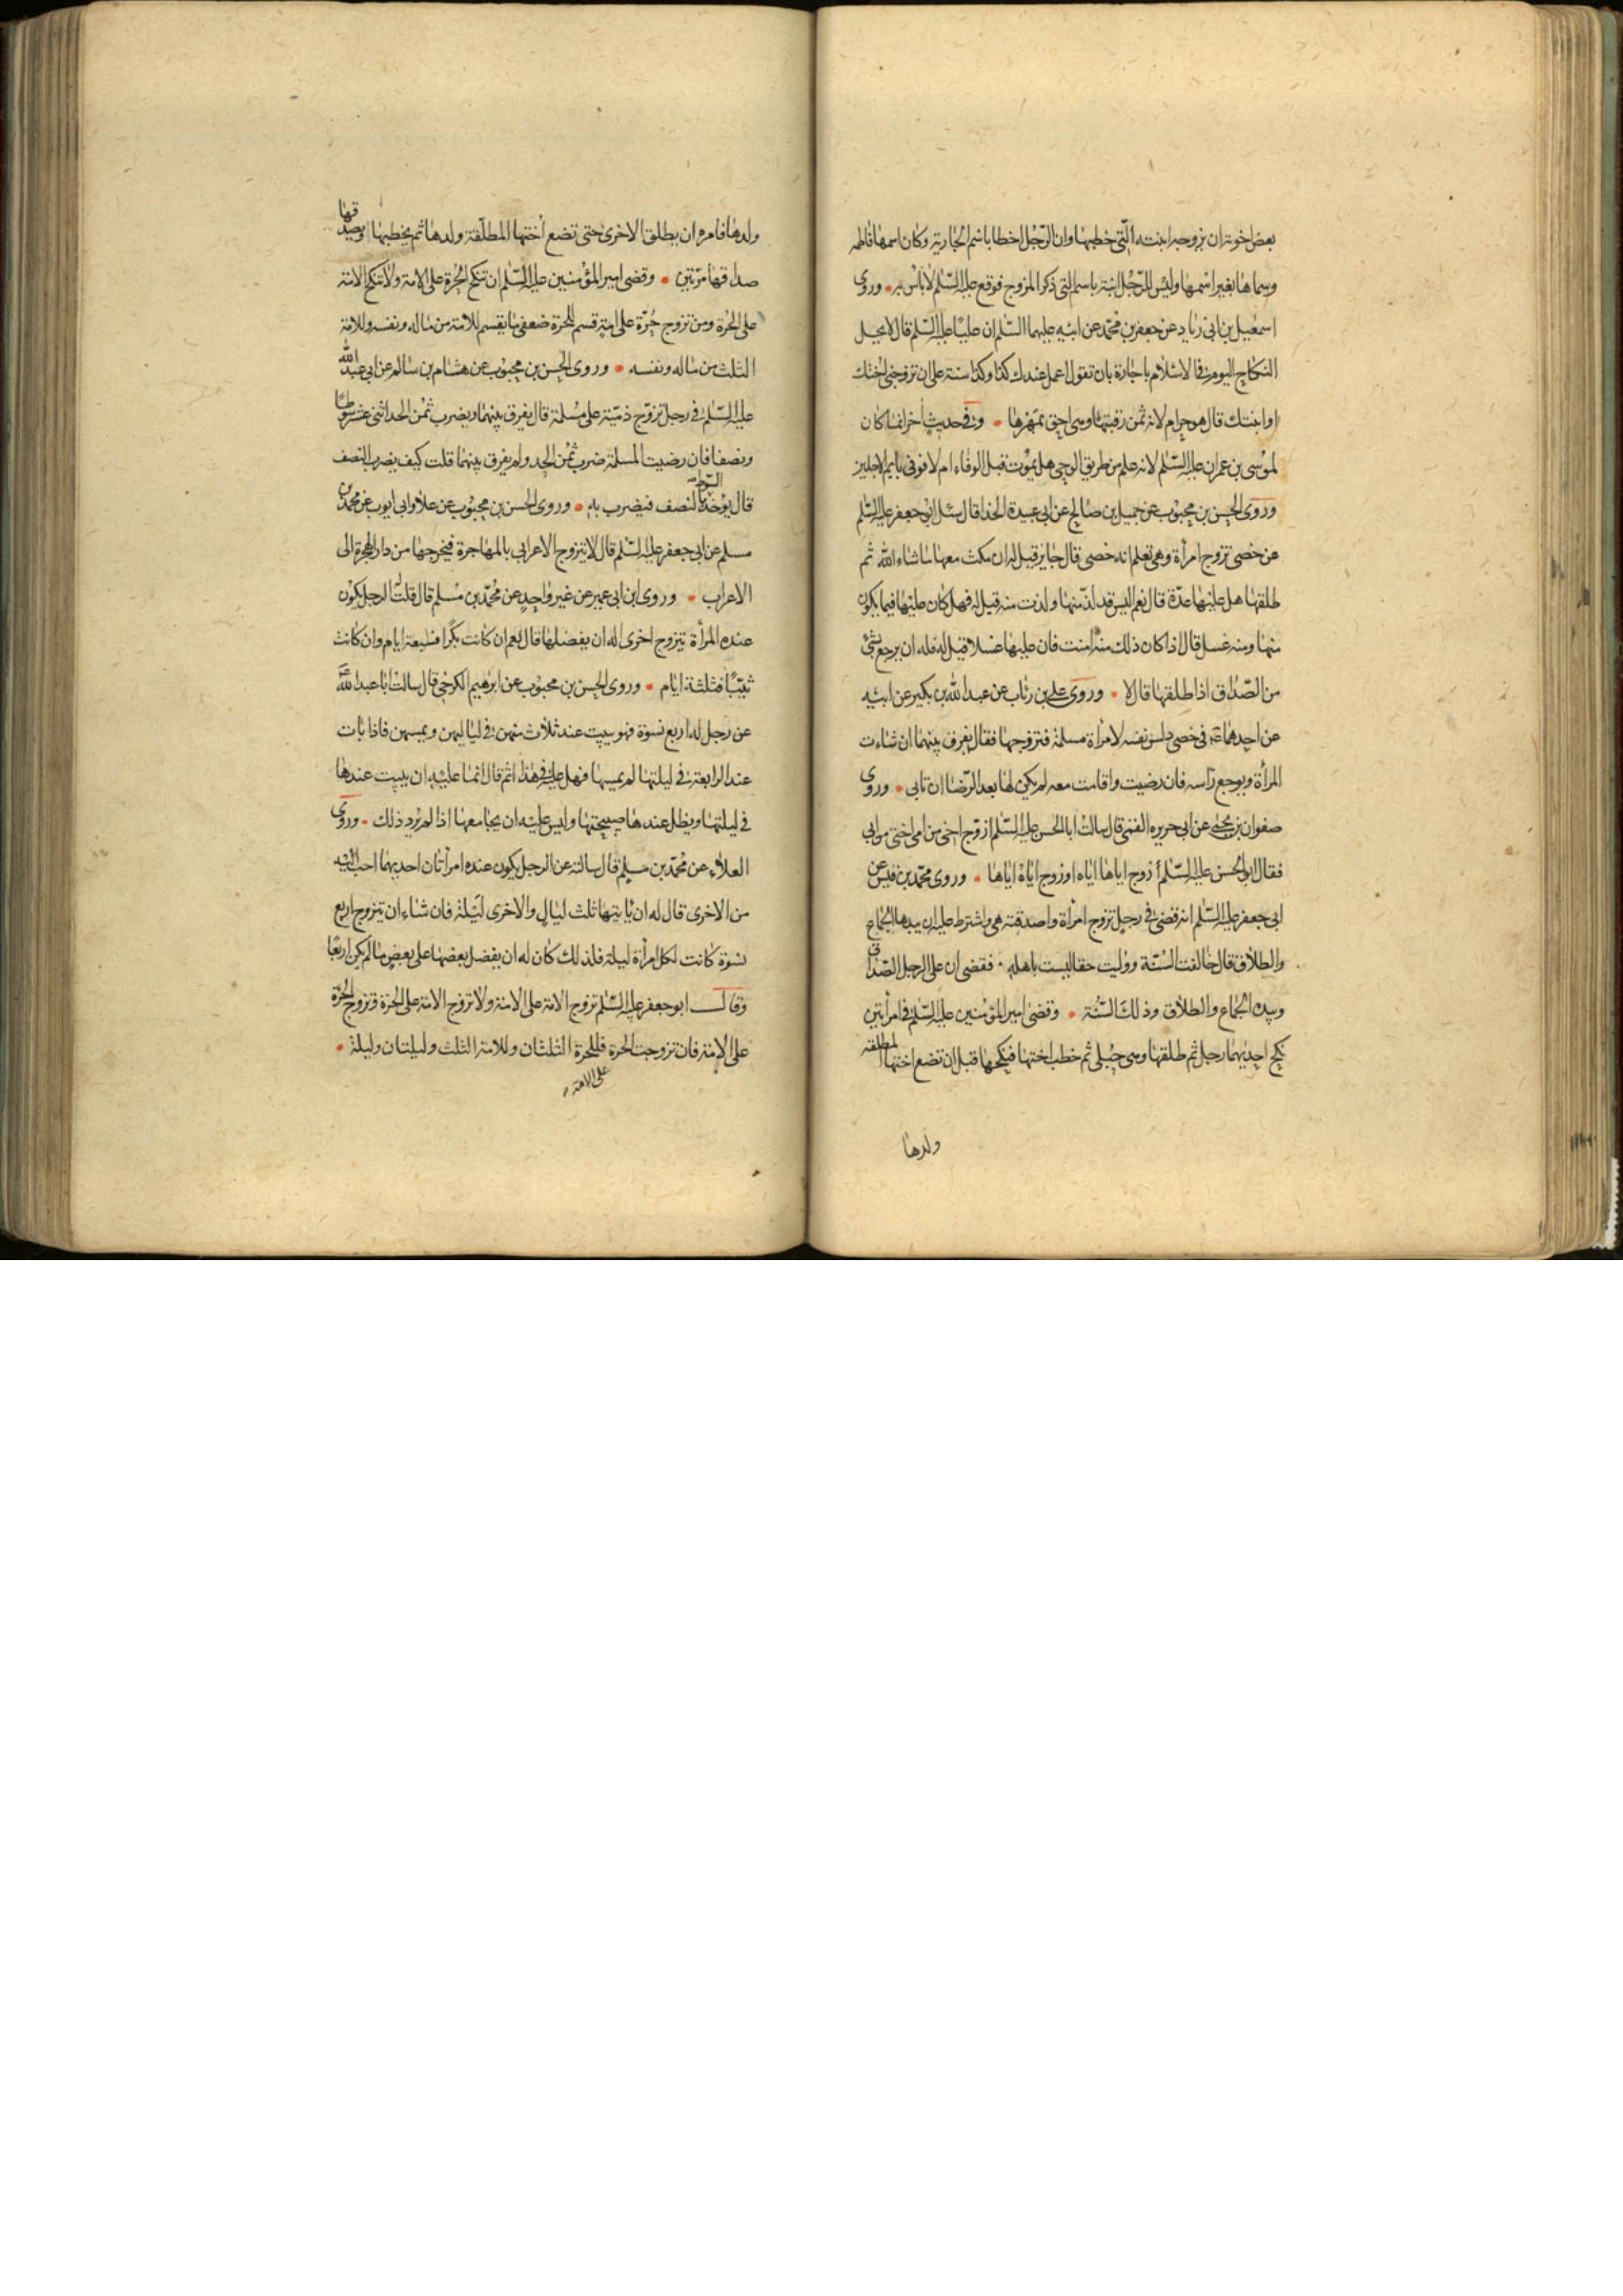 بعض اخوته ان يزوجه ابنته التي خطبها وان الرجل اخطا باسم الجارية وكان اسمها فاطمة
وسماها بغير اسمها وليس للرجل ابنة باسم التي ذكر المزوج فوقع عليه السلم لا باس به • وروى
اسمعيل بن ابي زياد عن جعفر بن محمد عن ابيه عليهما السلم ان عليا عليه السلم قال لا يحل
النكاح اليوم في الاسلام باجارة بان تقول اعمل عندك كذا وكذا سنة على ان تزوجني اختك
او ابنتك قال هو حرام لانه ثمن رقبتها وهي احق بمهرها • وفي حديث اخر انما كان
لموسى بن عمران عليه السلم لانه علم من طريق الوحي هل يموت قبل الوفاء ام لا فوفى باتم الاجلين
وروى الحسن بن محبوب عن جميل بن صالح عن ابي عبيدة الحذا قال سئل ابو جعفر عليه السلم
عن خصي تزوج امرأة وهي تعلم انه خصي قال جايز قيل له ان مكث معها ما شاء الله ثم
طلقها هل عليها عدة قال نعم اليس قد لذ منها ولذت منه قيل له فهل كان عليها فيما يكون
منها ومنه غسل قال اذا كان ذلك منه امنت فان عليها غسلا قيل له فله ان يرجع بشئ
من الصداق اذا طلقها قال لا • وروى علي بن رئاب عن عبد الله بن بكير عن ابيه
عن احدهما ع في خصي دلس نفسه لامرأة مسلمة فتزوجها فقال يفرق بينهما ان شاءت
المرأة ويوجع راسه فان رضيت واقامت معه لم يكن لها بعد الرضا ان تابى • وروى
صفوان بن يحيى عن ابي جرير القمي قال سالت ابا الحسن عليه السلم ازوج اخي من امي اختي من ابي
فقال ابو الحسن عليه السلم أزوج اياها اياه او زوج اياه اياها • وروى محمد بن قيس عن
ابي جعفر عليه السلم انه قضى في رجل تزوج امرأة واصدقته هي واشترط عليه ان بيدها الجماع
والطلاق قال خالفت السنة ووليت حقا ليست باهله • فقضى ان على الرجل الصداق
وبيده الجماع والطلاق وذلك السنة • وقضى امير المؤمنين عليه السلم في امرأتين
نكح احديهما رجل ثم طلقها وهي حبلى ثم خطب اختها فنكحها قبل ان تضع اختها المطلقه
ولدها
ولدها فامره ان يطلق الاخرى حتى تضع أختها المطلقة ولدها ثم يخطبها ويصدقها
صداقها مرتين • وقضى امير المؤمنين عليه السلم ان تنكح الحرة على الامة ولا تنكح الامة
على الحرة ومن تزوج حرة على امة قسم للحرة ضعفي ما يقسم للامة من ماله ونفسه وللامة
الثلث من ماله ونفسه • وروى الحسن بن محبوب عن هشام بن سالم عن ابي عبد الله
عليه السلم في رجل تزوج ذمية على مسلمة قال يفرق بينهما ويضرب ثمن الحد اثني عشر سوطا
ونصفا فان رضيت المسلمة ضرب ثمن الحد ولم يفرق بينهما قلت كيف يضرب النصف
قال يؤخذ السوط بالنصف فيضرب به • وروى الحسن بن محبوب عن علا وابي ايوب عن محمد بن
مسلم عن ابي جعفر عليه السلم قال لا يتزوج الاعرابي بالمهاجرة فيخرجها من دار الهجرة الى
الاعراب • وروى ابن ابي عمير عن غير واحد عن محمد بن مسلم قال قلت له الرجل يكون
عنده المرأة يتزوج اخرى اله ان يفضلها قال نعم ان كانت بكرا فسبعة ايام وان كانت
ثيبا فثلثة ايام • وروى الحسن بن محبوب عن ابرهيم الكرخي قال سالت ابا عبد الله ع
عن رجل له اربع نسوة فهو يبيت عند ثلاث منهن في لياليهن ويمسهن فاذا بات
عند الرابعة في ليلتها لم يمسها فهل عليه في هذا اثم قال انما عليه ان يبيت عندها
في ليلتها ويظل عندها صبيحتها وليس عليه ان يجامعها اذا لم يرد ذلك • وروى
العلاء عن محمد بن مسلم قال سالته عن الرجل يكون عنده امرأتان احديهما احب اليه
من الاخرى قال له ان ياتيها ثلث ليال والاخرى ليلة فان شاء ان يتزوج اربع
نسوة كانت لكل امرأة ليلة فلذلك كان له ان يفضل بعضها على بعض ما لم يكن اربعا
وقال ابو جعفر عليه السلم تزوج الامة على الامة ولا تزوج الامة على الحرة وتزوج الحرة
على الامة فان تزوجت الحرة فللحرة الثلثان وللامة الثلث وليلتان وليلة •
على الامة